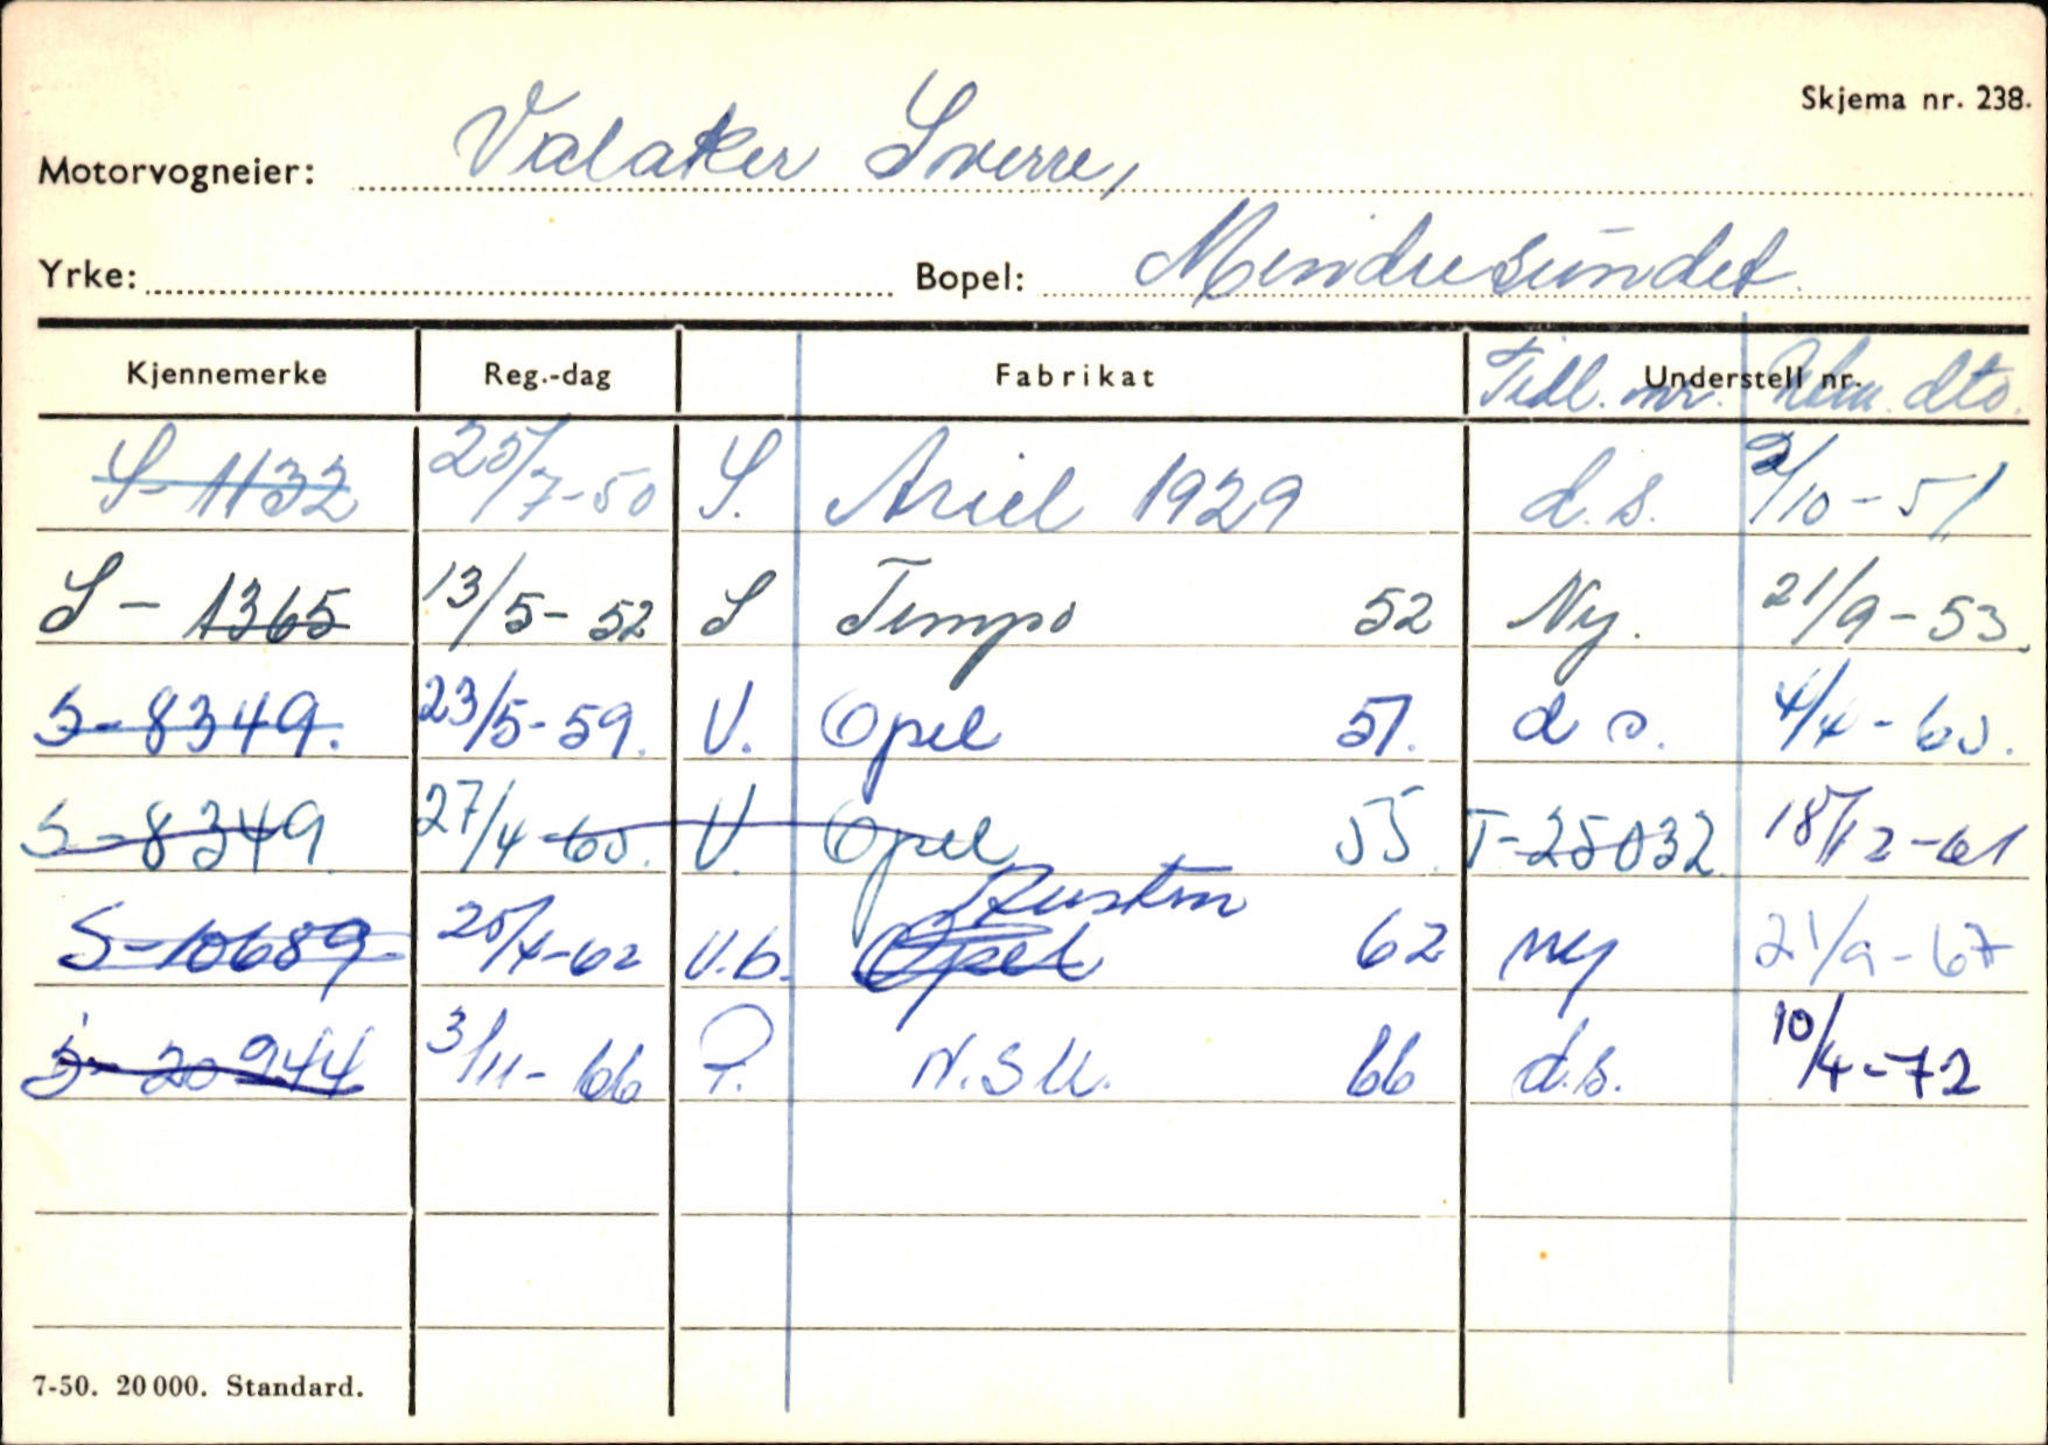 Skjema nr. 238.
Motorvogneier: Valaker Sverre,
Yrke: Bopel: Mindresundet.
Kjennemerke Reg.-dag Fabrikat Understell nr. Tidl. nr. dto.
S-1132 25/7-50 S. Ariel 1929 d.s. 2/10-51
S-1365 13/5-52 S Tempo 52 Ny. 21/9-53.
S-8349. 23/5-59. V. Opel 51. d s. 4/4-60.
S-8349 27/4-60. V. Opel 55 T-25032 18/12-61
Austin
S-10689 25/4-62 V.b. Opel 62 ny 21/9-67
S-20944 3/11-66 P. N.S.U. 66 d.s. 10/4-72
7-50. 20 000. Standard.